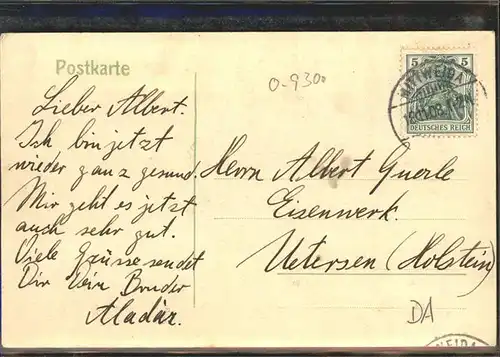 Postkarte
Lieber Albert.
Ich bin jetzt
wieder ganz gesund.
Mir geht es jetzt
auch sehr gut.
Viele Grüsse sendet
Dir Dein Bruder
Aladár.
O-9300
5 5
MITTWEIDA
DEUTSCHES REICH
Herrn Albert Querle
Eisenwerk.
Uetersen (Holstein)
DA
WEIDA